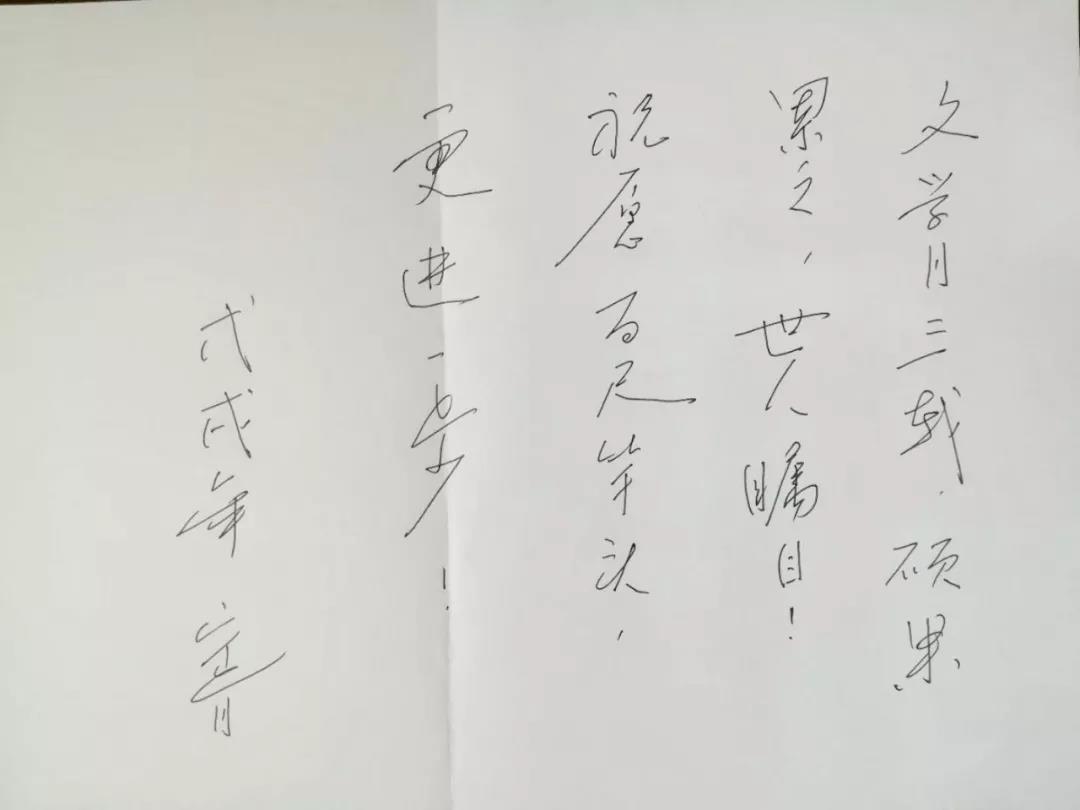 文学月三载，硕果
累々，世人瞩目！
祝愿百尺竿头，
更进一步！
戊戌年